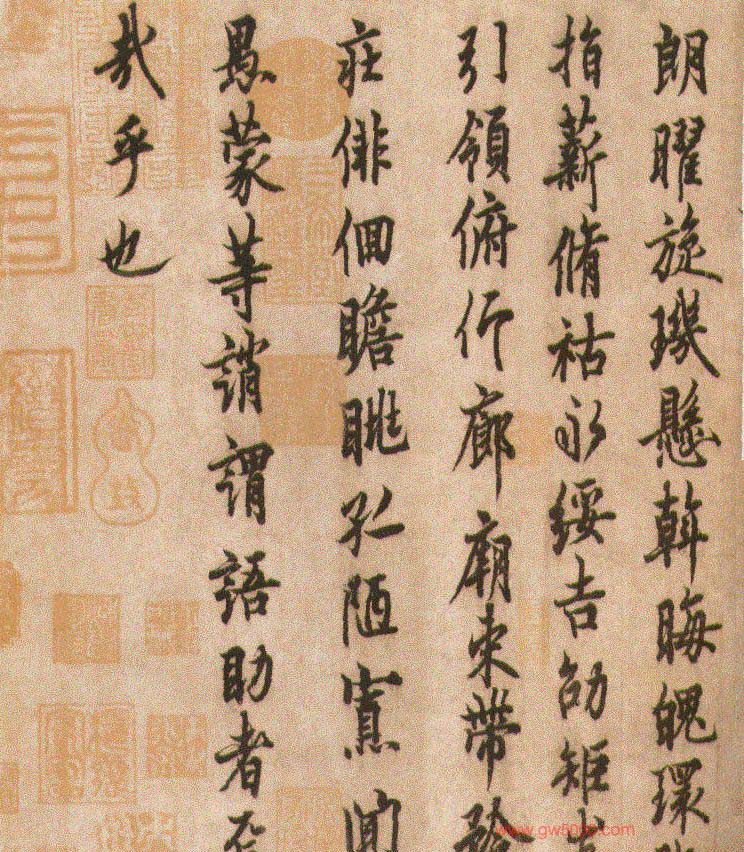 朗曜旋璣懸斡晦魄環
指薪脩祜永綏吉劭矩
引領俯仰廊廟束帶
庄俳佪瞻眺孤陋寡聞
愚蒙等誚謂語助者焉
哉乎也